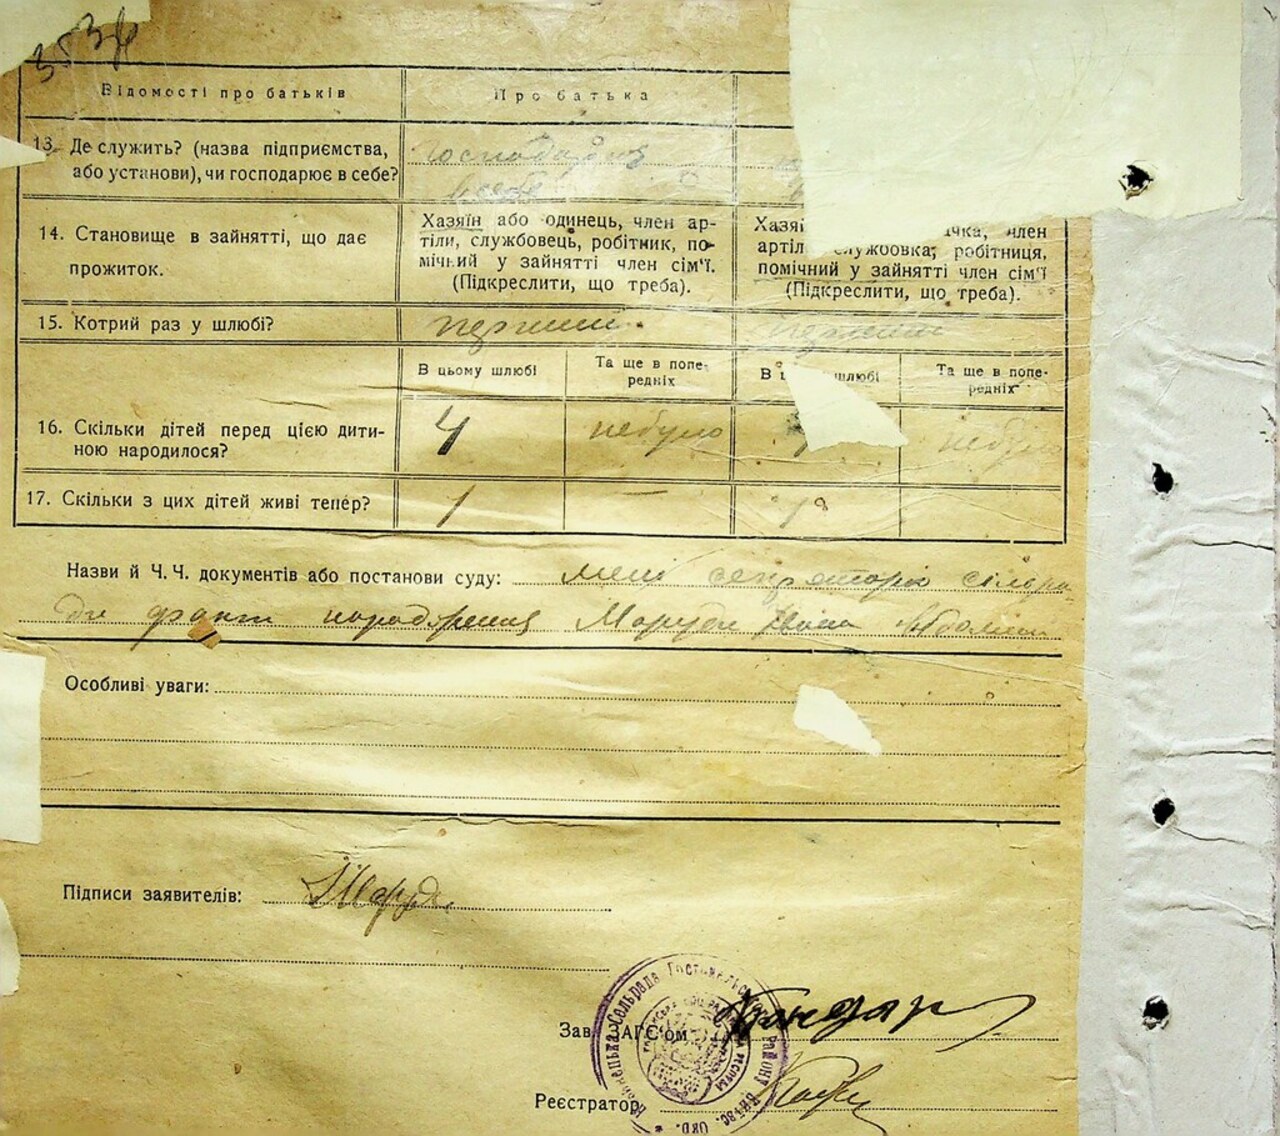 Відомості про батьків
Про батька
13. Де служить? (назва підприємства,
або установи), чи господарює в себе?
господарює
в себе
14. Становище в зайнятті, що дає
прожиток.
Хазяїн або одинець, член ар-
тіли, службовець, робітник, по-
мічний у зайнятті член сім'ї.
(Підкреслити, що треба).
член
робітниця,
помічний у зайнятті член сім'ї
(Підкреслити, що треба).
15. Котрий раз у шлюбі?
перший
перший
В цьому шлюбі
Та ще в попе-
редніх
шлюбі
Та ще в попе-
редніх
16. Скільки дітей перед цією дити-
ною народилося?
4
небуло
небуло
17. Скільки з цих дітей живі тепер?
1
—
1
Назви й Ч. Ч. документів або постанови суду: мені секретарю сільра-
ди факт народження
Особливі уваги:
Підписи заявителів:
Зав. ЗАГС'ом
Реєстратор